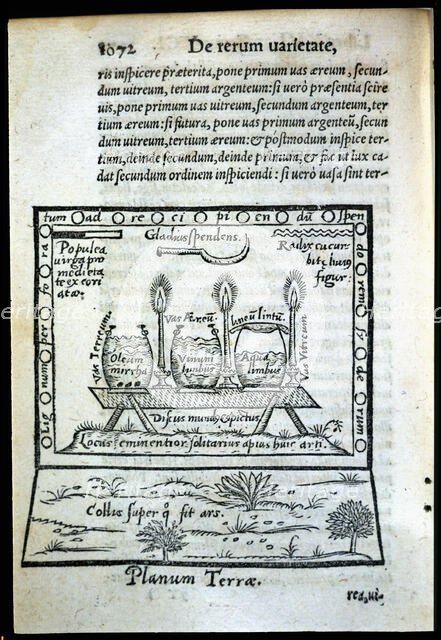 1072 De rerum uarietate,
ris inſpicere præterita, pone primum uas æreum, ſecun-
dum uitreum, tertium argenteum: ſi uerò præſentia ſcire
uis, pone primum uas uitreum, ſecundum argenteum, ter
tium æreum: ſi futura, pone uas primum argenteū, ſecun
dum uitreum, tertium æreum: & poſtmodum inſpice ter-
tium, deinde ſecundum, deinde primum, & fac ut lux ca
dat ſecundum ordinem inſpiciendi: ſi uerò uaſa ſint ter-
tum ad re ci pi en dū ſpen
do rem ſy de rum
Lig num per fo ra
Populea
uirga pro
medietate
excori
atæ.
Gladius ſpendens.
Radix cucur
bitæ
figur:
Vas Terreum
Vas Æreū.
lineū lintū.
Vas Vitreum
Oleum
mirrhæ
Vinum
limbus
Aqua
limbus
Diſcus mundus & pictus
Locus eminentior ſolitarius apius huic arti.
Collis ſuper q̄ fit ars.
Planum Terræ.